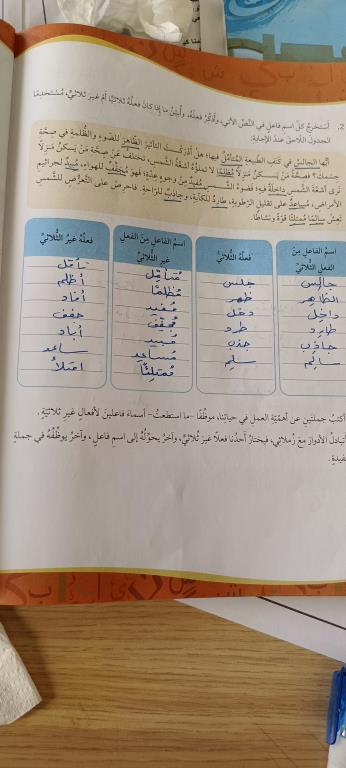 2. أستخرجُ كلَّ اسمِ فاعلٍ في النّصّ الآتي، وأذكرُ فعلَهُ، وأُبيّنُ ما إذا كانَ فعلُهُ ثلاثيًّا أمْ غيرَ ثلاثيٍّ، مُستخدِمًا
الجدولَ اللّاحقَ عندَ الإجابةِ:
أيّها الجالسُ في كنفِ الطّبيعةِ المُتأمِّلُ فيها؛ هلْ أدركتَ التأثيرَ الظّاهرَ للضّوءِ والظُّلمةِ في صحّةِ
جسمِكَ؟ فصحّةُ مَنْ يسكنُ منزلًا مُظلِمًا لا تدخلُهُ أشعّةُ الشّمسِ، تختلفُ عنْ صحّةِ مَنْ يسكنُ منزلًا
ترى أشعّةَ الشّمسِ داخلةً فيهِ؛ فضوءُ الشّمسِ مُفيدٌ مِنْ وجوهٍ عدّةٍ؛ فهوَ مُجفِّفٌ للهواءِ، مُبيدٌ لجراثيمِ
الأمراضِ، مُساعِدٌ على تقليلِ الرّطوبةِ، طاردٌ للكآبةِ، وجاذبٌ للرّاحةِ. فاحرصْ على التّعرُّضِ للشّمسِ
تعشْ سالمًا مُمتلئًا قوّةً ونشاطًا.
اسمُ الفاعلِ مِنَ الفعلِ الثُّلاثيِّ
فعلُهُ الثُّلاثيُّ
اسمُ الفاعلِ مِنَ الفعلِ غيرِ الثُّلاثيِّ
فعلُهُ غيرُ الثُّلاثيِّ
جالس جلس مُتأمّل تأمّل
الظاهر ظهر مُظلمًا أظلم
داخل دخل مُفيد أفاد
طارد طرد مُجفّف جفف
جاذب جذب مُبيد أباد
سالم سلم مُساعد ساعد
مُمتلئًا امتلأ
أكتبُ جملتينِ عن أهمّيّةِ العملِ في حياتِنا، موظّفًا -ما استطعتُ- أسماءَ فاعلينَ لأفعالٍ غيرِ ثلاثيّةٍ.
أتبادلُ الأدوارَ معَ زملائي، فيختارُ أحدُنا فعلًا غيرَ ثُلاثيٍّ، وآخرُ يحوّلُهُ إلى اسمِ فاعلٍ، وآخرُ يوظِّفُهُ في جملةٍ
مفيدةٍ.